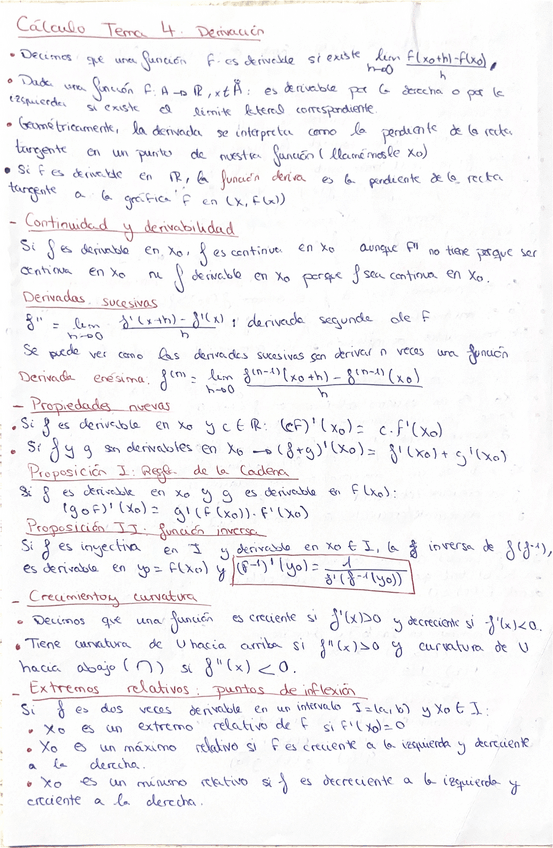 Cálculo Tema 4. Derivación
• Decimos que una función f es derivable si existe lim h→0 f(x0+h)-f(x0) / h,
• Dada una función f: A → ℝ, x ∈ Å: es derivable por la derecha o por la
izquierda si existe el límite lateral correspondiente.
• Geométricamente, la derivada se interpreta como la pendiente de la recta
tangente en un punto de nuestra función (llamémosle x0)
• Si f es derivable en ℝ, la función deriva es la pendiente de la recta
tangente a la gráfica f en (x, f(x))
- Continuidad y derivabilidad
Si f es derivable en x0, f es continua en x0 aunque f' no tiene porque ser
continua en x0 ni f derivable en x0 porque f sea continua en x0.
Derivadas sucesivas
f'' = lim h→0 f'(x+h) - f'(x) / h : derivada segunda de f
Se puede ver como las derivadas sucesivas son derivar n veces una función
Derivada enésima: f^(n) = lim h→0 f^(n-1)(x0+h) - f^(n-1)(x0) / h
- Propiedades nuevas
• Si f es derivable en x0 y c ∈ ℝ: (cf)'(x0) = c · f'(x0)
• Si f y g son derivables en x0 → (f+g)'(x0) = f'(x0) + g'(x0)
Proposición I: Regla de la Cadena
Si f es derivable en x0 y g es derivable en f(x0):
(g∘f)'(x0) = g'(f(x0)) · f'(x0)
Proposición II: función inversa
Si f es inyectiva en I y derivable en x0 ∈ I, la f inversa de f (f^-1),
es derivable en y0 = f(x0) y (f^-1)'(y0) = 1 / f'(f^-1(y0))
- Crecimiento y curvatura
• Decimos que una función es creciente si f'(x)>0 y decreciente si f'(x)<0.
• Tiene curvatura de U hacia arriba si f''(x)>0 y curvatura de U
hacia abajo (∩) si f''(x) < 0.
- Extremos relativos: puntos de inflexión
Si f es dos veces derivable en un intervalo I=(a,b) y x0 ∈ I:
• x0 es un extremo relativo de f si f'(x0)=0
• x0 es un máximo relativo si f es creciente a la izquierda y decreciente
a la derecha.
• x0 es un mínimo relativo si f es decreciente a la izquierda y
creciente a la derecha.